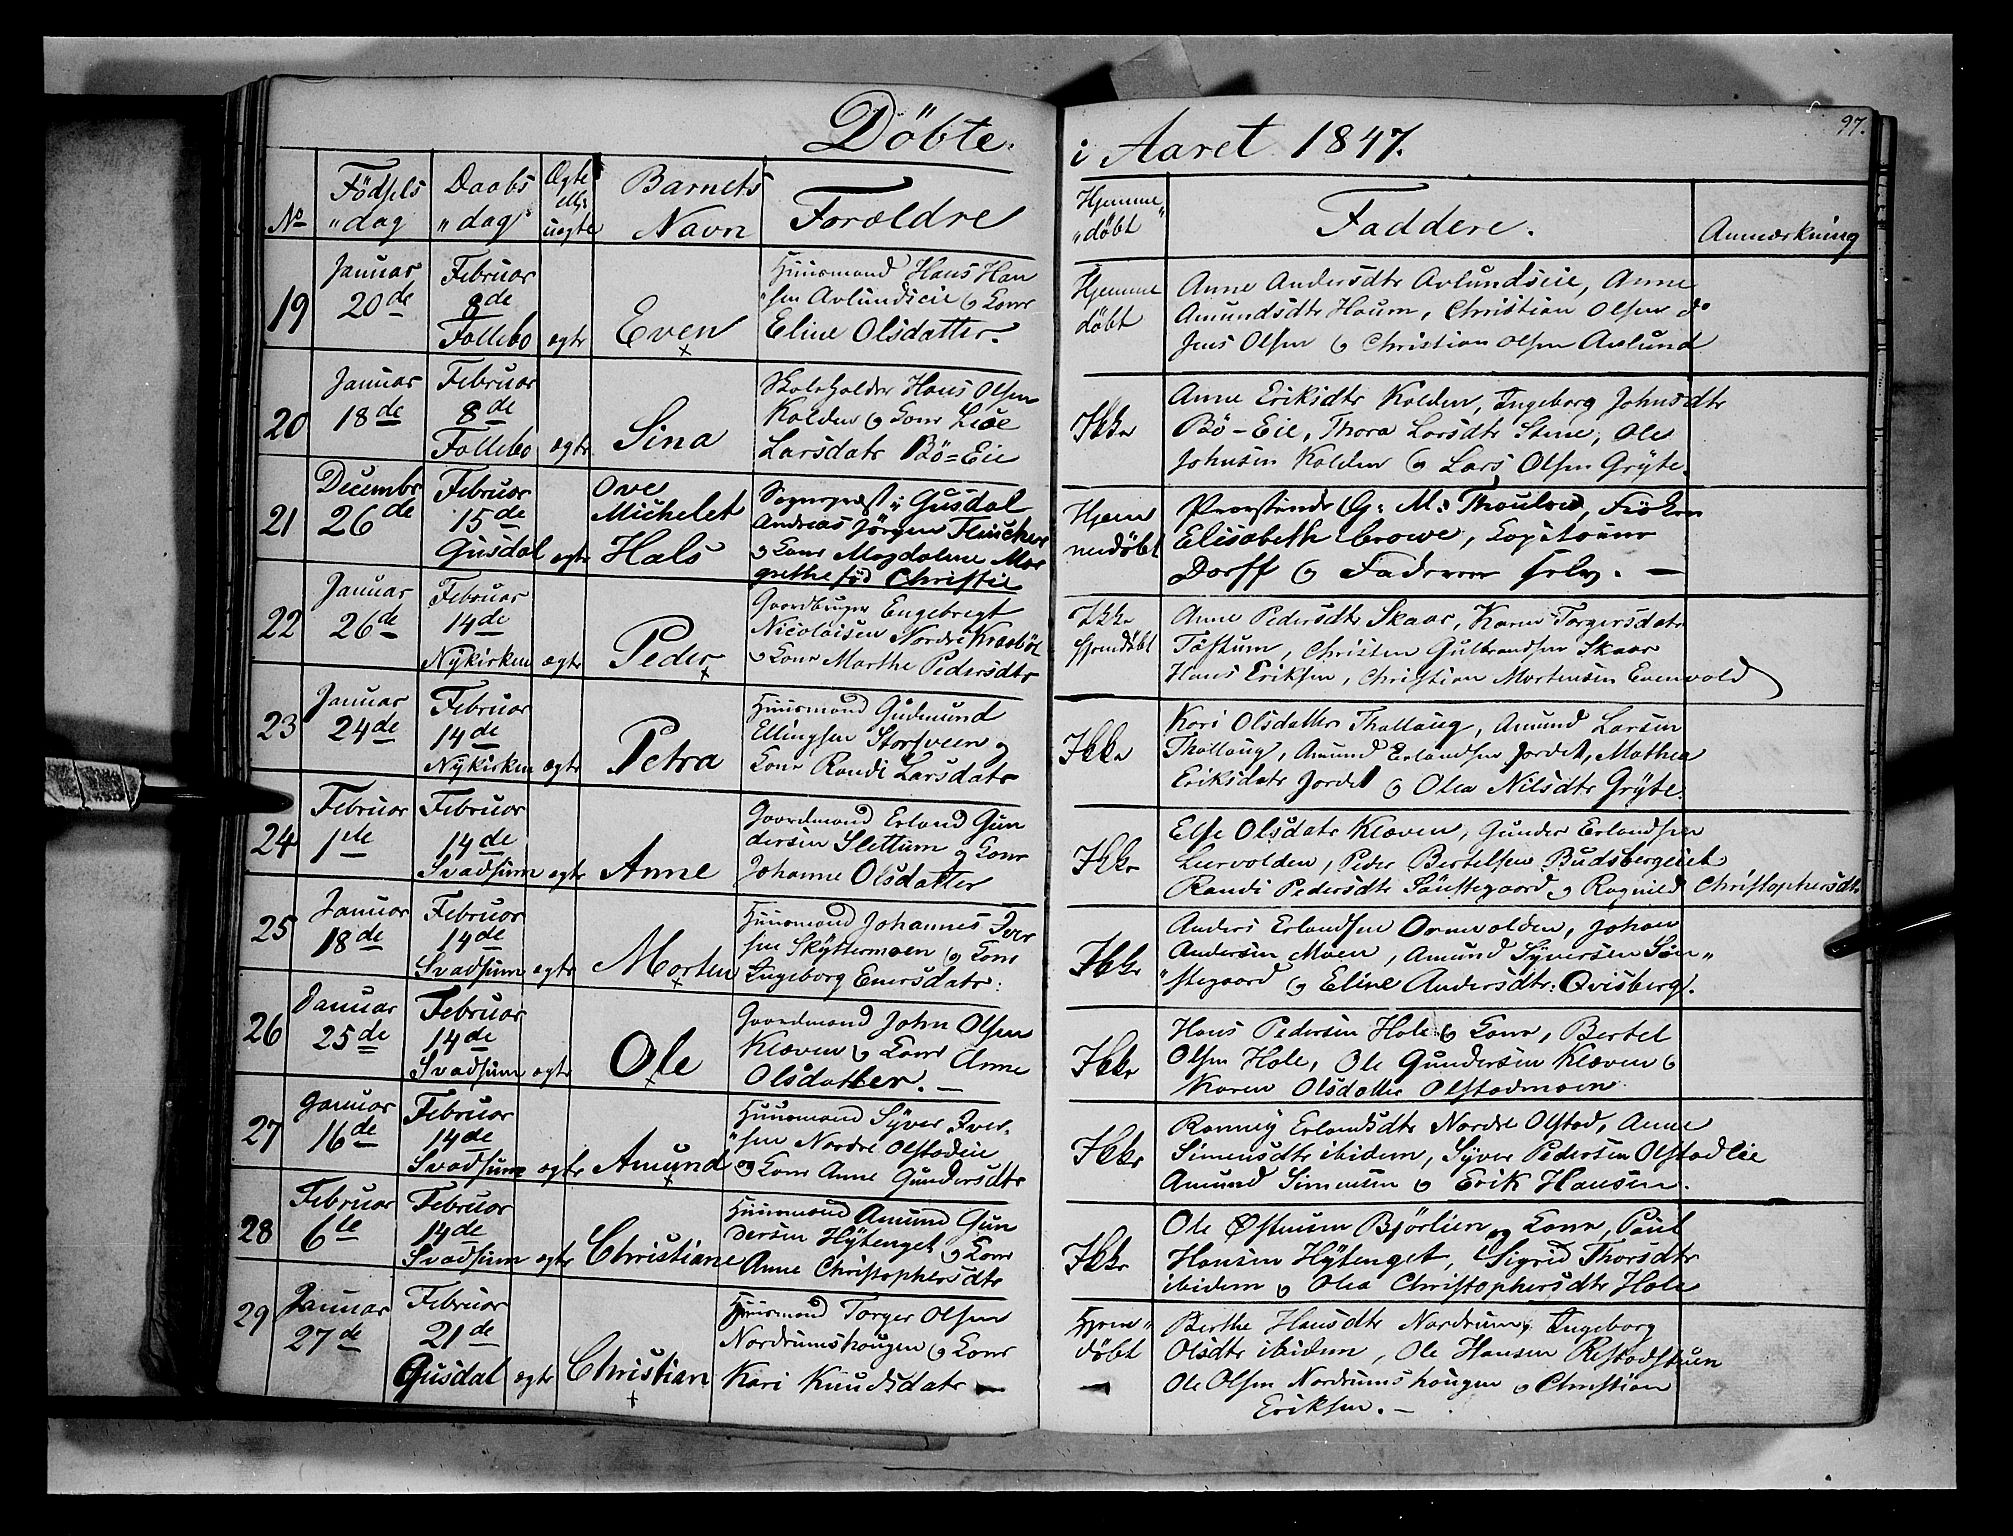 Döbte.
i Aaret 1847.
97.
No
Födsels
"dag
Daabs
"dag
Ægte
ell:
uægte
Barnets
Navn
Forældre
Hjemme"
"döbt
Faddere.
Anmærkning
19
Januar
20de
Februar
8de
Follebo
ægte
Even
Huusmand Hans Han
"sen Avlundseie og Kone
Eline Olsdatter.
Hjemme
döbt
Anne Andersdtr Avlundseie, Anne
Amundsdtr Houm, Christian Olsen do
Jens Olsen og Christian Olsen Avlund
20
Januar
18de
Februar
8de
Follebo
ægte
Sina
Skoleholder Hans Olsen
Kolden og Kone Lise
Larsdatr Bö=Eie
Ikke
Anne Eriksdtr Kolden, Ingeborg Johnsdtr
Bö-Eie, Thora Larsdtr Stene, Ole
Johnsen Kolden og Lars Olsen Gryte.
21
Decembr
26de
Februar
15de
Gusdal
ægte
Ove
Michelet
Hals
Sognepræst i Gusdal
Andreas Jörgen Fleischer
og Kone Magdalene Mar
grethe fød Christie
Hjem
medöbt
Provstinde G: M: Thaulow, Fröken
Elisabeth Crowe, Capitaine
Dorff og Faderen selv. —
22
Januar
26de
Februar
14de
Nykirken
ægte
Peder
Gaardbruger Engebregt
Nicolaisen Nordre Kraaböl
og Kone Marthe Pedersdtr
Ikke
hjemdöbt
Anne Pedersdtr Skaar, Karen Torgersdatr
Toftum, Christen Gulbrandsen Skaar
Hans Eriksen, Christian Mortensen Evenvold
23
Januar
24de
Februar
14de
Nykirken
ægte
Petra
Huusmand Gudmund
Ellingsen Storsveen og
Kone Randi Larsdatr
Ikke
Kari Olsdatter Thallaug, Amund Larsen
Thallaug, Amund Erlandsen Jordet, Mathea
Eriksdatr Jordet og Olea Nilsdtr Gryte.
24
Februar
1ste
Februar
14de
Svadsum
ægte
Anne
Gaardmand Erland Gun
dersen Slettum og Kone
Johanne Olsdatter
Ikke
Else Olsdatr Klæven, Gunder Erlandsen
Leervolden, Peder Bertelsen Budsbergeiet
Randi Pedersdtr Sönstegaard og Ragnild Christophersdtr
25
Januar
18de
Februar
14de
Svadsum
ægte
Morten
Huusmand Johannes Iver
sen Skyttermoen og Kone
Ingeborg Enersdatr:
Ikke
Anders Erlandsen Ormvolden, Johan
Andersen Moen, Amund Syversen Sön"
"stegaard og Eline Andersdtr: Qvisberg.
26
Januar
25de
Februar
14de
Svadsum
ægte
Ole
Gaardmand John Olsen
Klæven og Kone Anne
Olsdatter. —
Ikke
Hans Pedersen Hole og Kone, Bertel
Olsen Hole, Ole Gundersen Klæven og
Karen Olsdatter Olstadmoen
27
Januar
16de
Februar
14de
Svadsum
ægte
Amund
Huusmand Syver Iver-
"sen Nordre Olstadeie
og Kone Anne Gundersdtr
Ikke
Ronney Erlandsdtr Nordre Olstad, Anne
Simensdtr ibidem, Syver Pedersen Olstadeie
Amund Simensen og Erik Hansen.
28
Februar
6te
Februar
14de
Svadsum
ægte
Christiane
Huusmand Amund Gun
dersen Hytenget og Kone
Anne Christophersdtr
Ikke
Ole Østensen Bjørlien og Kone, Paul
Hansen Hytenget, Sigrid Thorsdtr
ibidem og Olea Christophersdtr Hole
29
Januar
27de
Februar
21de
Gusdal
ægte
Christian
Huusmand Torger Olsen
Nordrumshougen og Kone
Kari Knudsdatr —
Hjem"
döbt
Berthe Hansdtr Nordrum, Ingeborg
Olsdtr ibidem, Ole Hansen Restadstuen
Ole Olsen Nordrumshougen og Christian
Eriksen. —